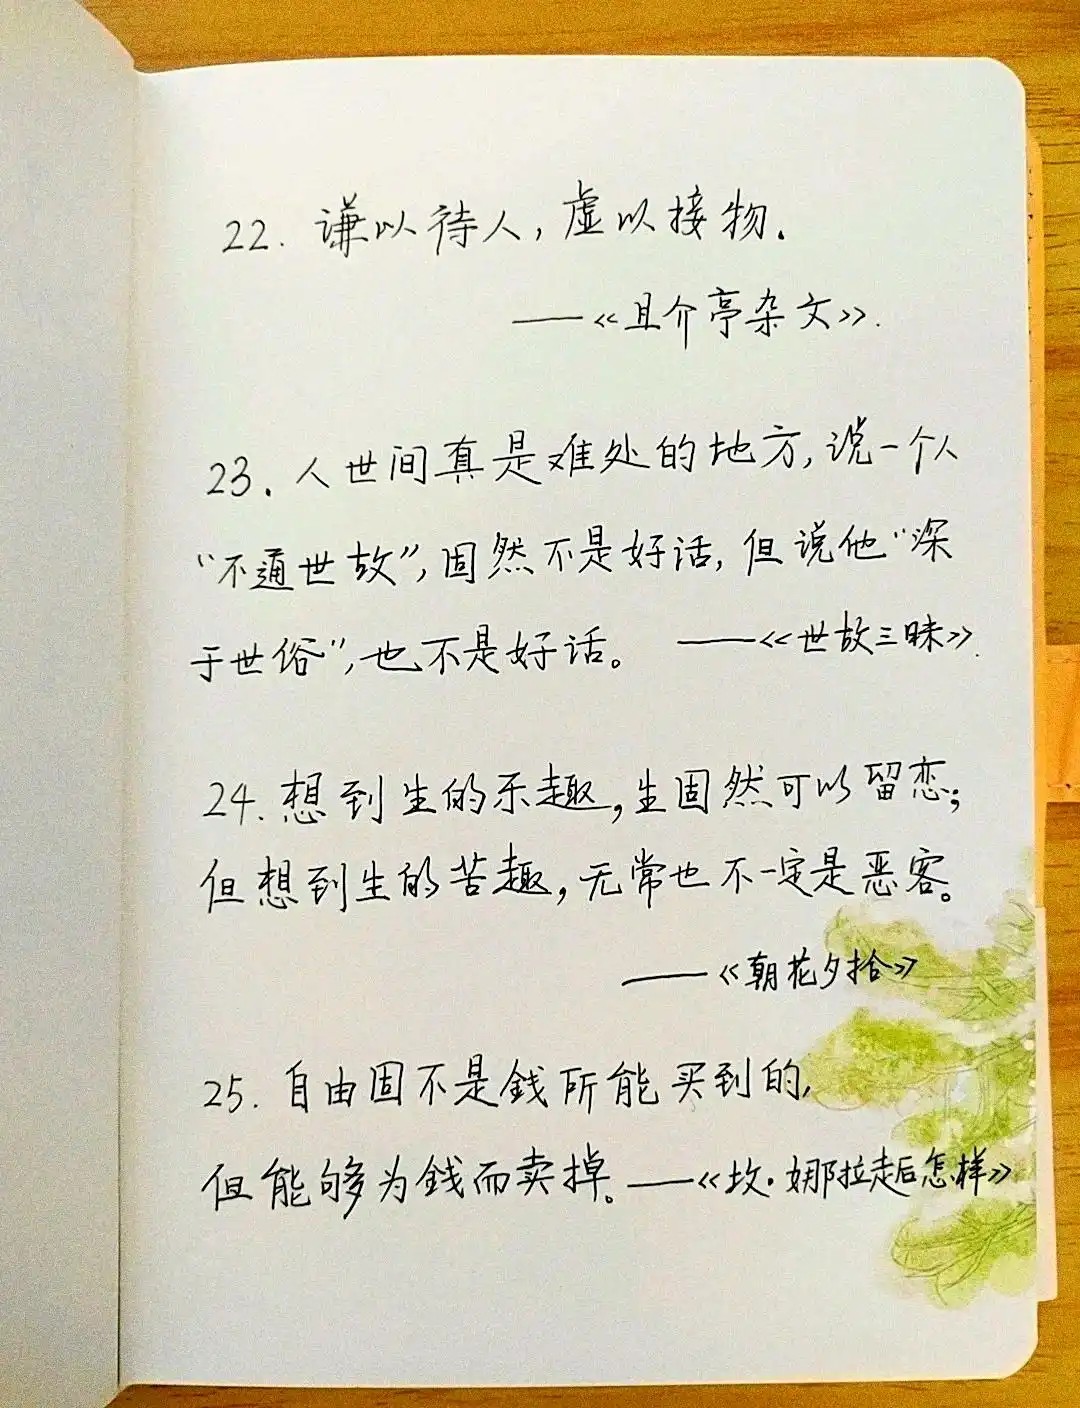 22. 谦以待人，虚以接物.
——《且介亭杂文》.
23. 人世间真是难处的地方，说一个人
“不通世故”，固然不是好话，但说他“深
于世俗”，也不是好话。 ——《世故三昧》.
24. 想到生的乐趣，生固然可以留恋；
但想到生的苦趣，无常也不一定是恶客。
——《朝花夕拾》
25. 自由固不是銭所能买到的，
但能够为銭而卖掉。——《坟·娜拉走后怎样》